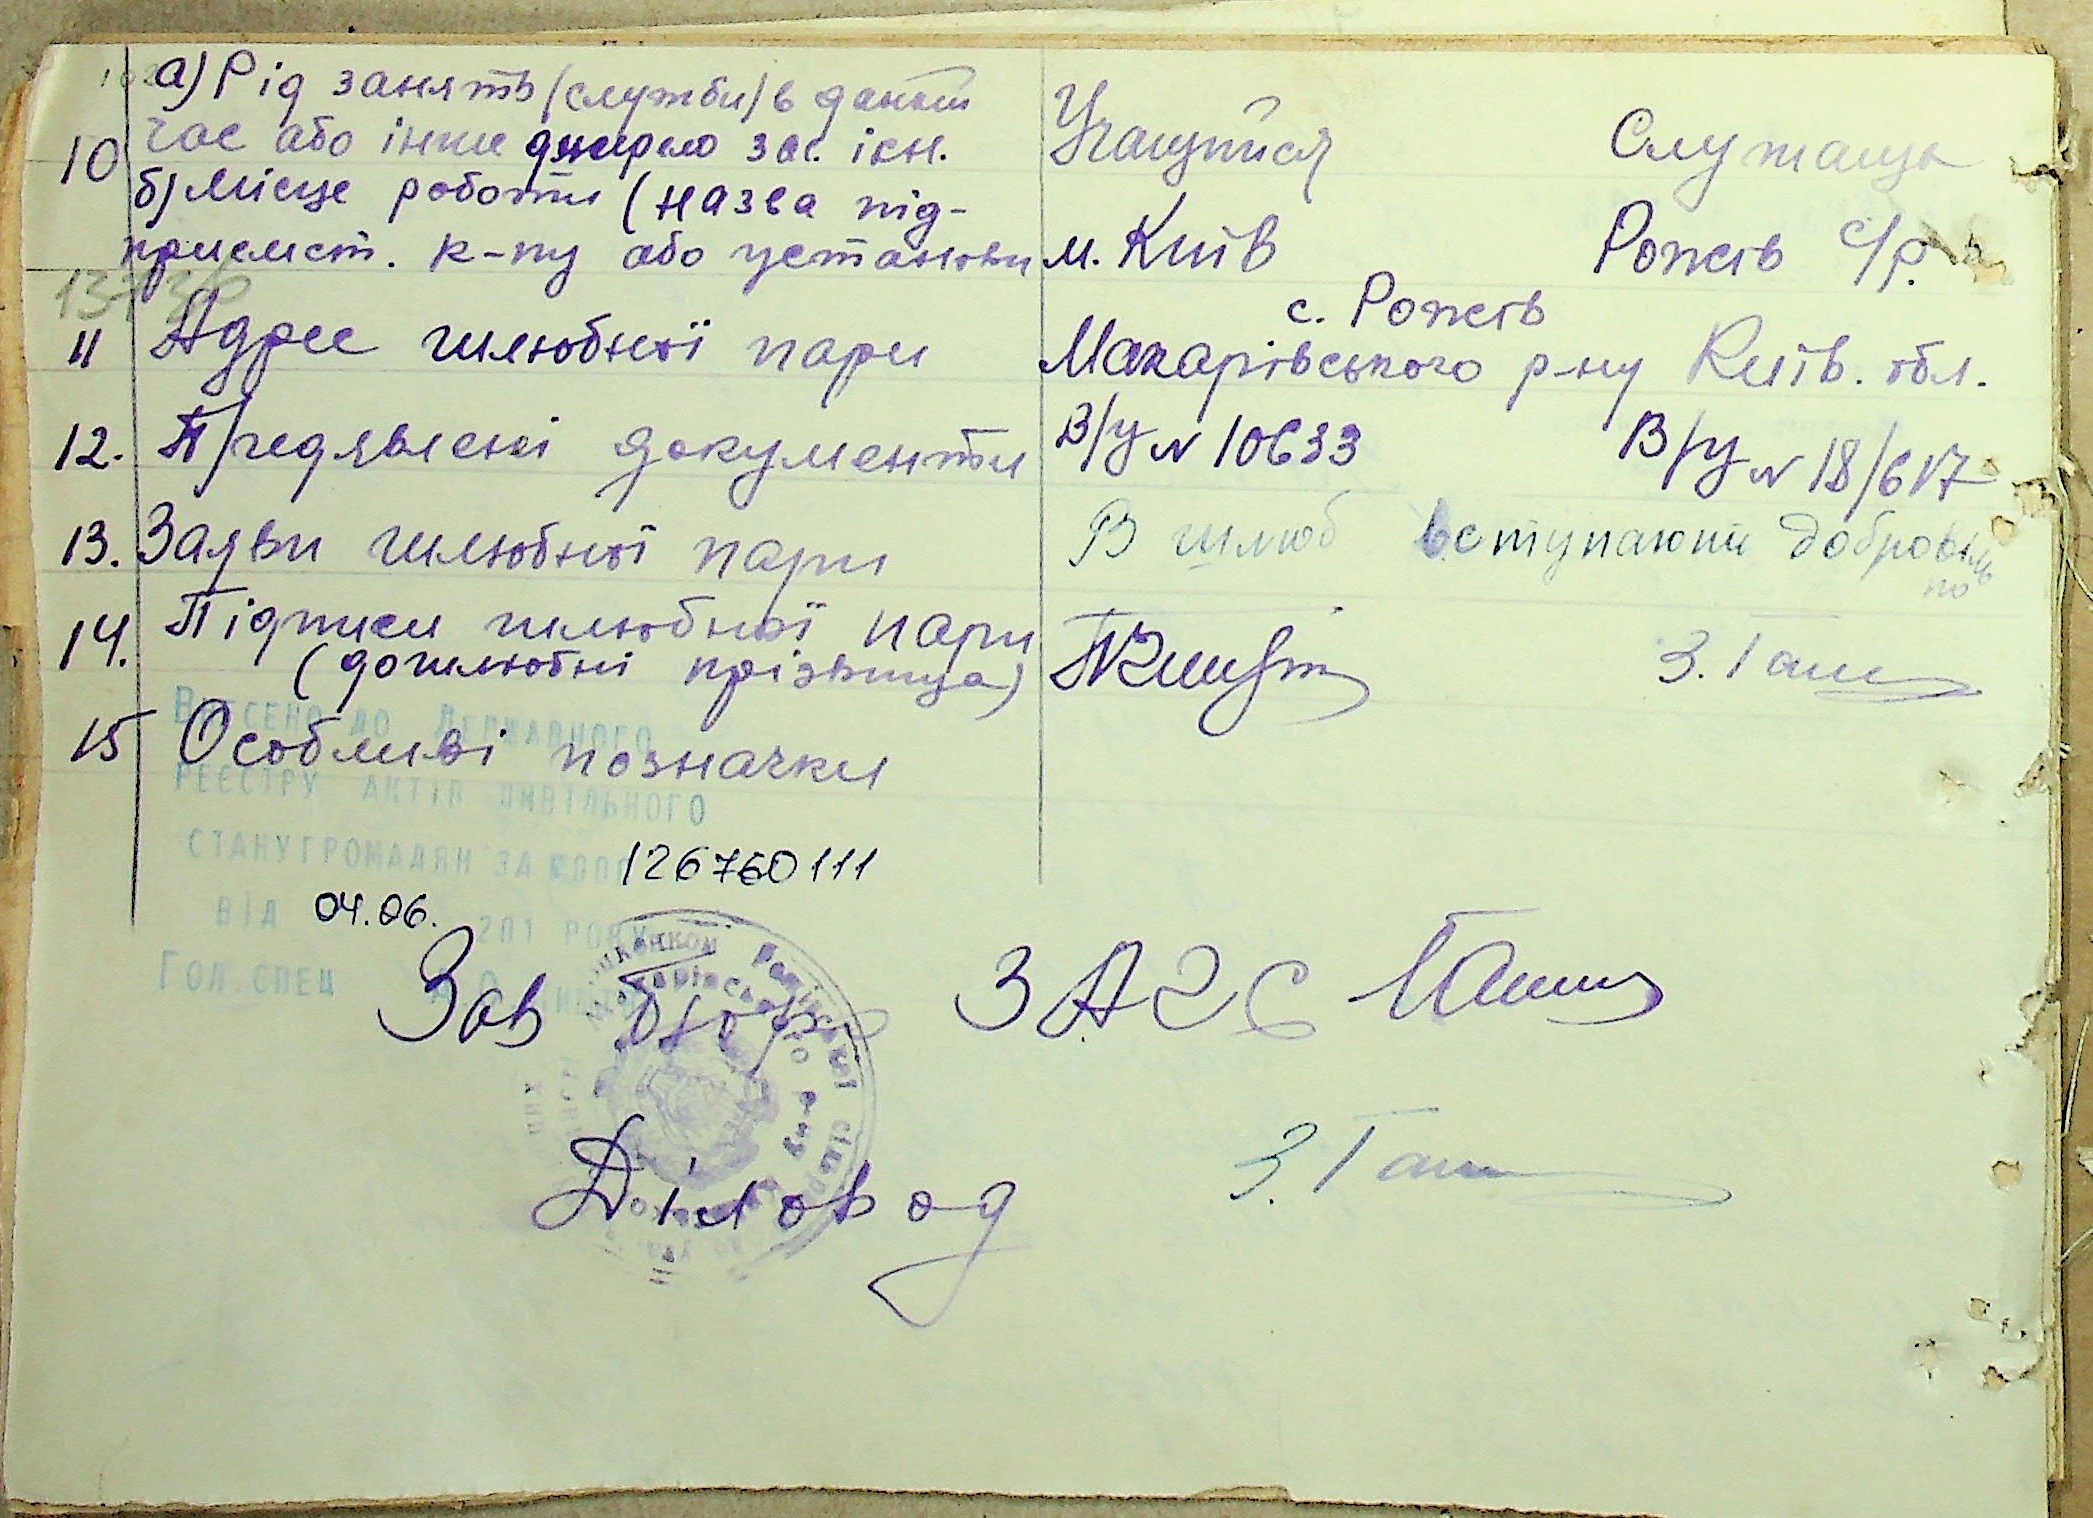 а) Рід занять (служби) в даний
10 час або інше джерело зас. існ.
Учащийся Служаща
б) Місце роботи (назва під-
приємст. к-ву або установи м. Київ Рожів с/р.
с. Рожів
11 Адрес шлюбної пари Макарівського р-ну Київ. обл.
12. Предявлені документи В/у N 10633 В/у N 18/617
13. Заяви шлюбної пари В шлюб вступають добровіль
но
14. Підписи шлюбної пари
(дошлюбні прізвища) З. Гаш
15 Особливі позначки
Внесено до Державного
реєстру актів цивільного
стану громадян за
126760111
від 04.06. 201 року
Гол. спец
Зав бюро ЗАГС
Діловод З. Гаш